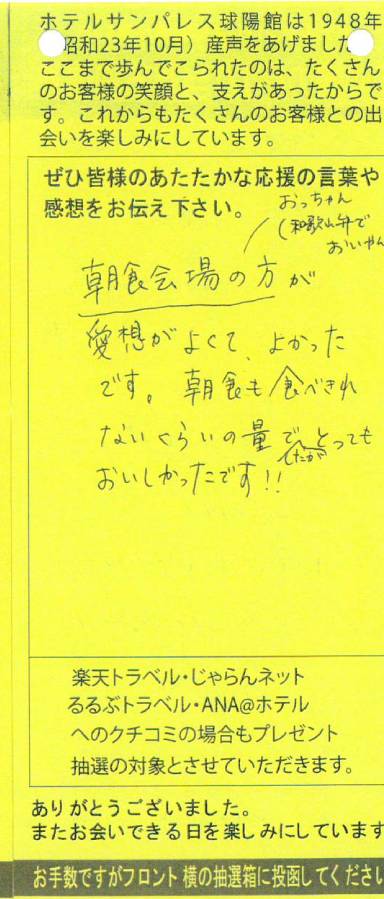 ホテルサンパレス球陽館は1948年
昭和23年10月）産声をあげました
ここまで歩んでこられたのは、たくさん
のお客様の笑顔と、支えがあったからで
す。これからもたくさんのお客様との出
会いを楽しみにしています。
ぜひ皆様のあたたかな応援の言葉や
感想をお伝え下さい。
おっちゃん
(和歌山弁で
おいやん
朝食会場の方が
愛想がよくて、よかった
です。朝食も食べきれ
ないくらいの量でしたがとっても
おいしかったです!!
楽天トラベル・じゃらんネット
るるぶトラベル・ANA@ホテル
へのクチコミの場合もプレゼント
抽選の対象とさせていただきます。
ありがとうございました。
またお会いできる日を楽しみにしています
お手数ですがフロント横の抽選箱に投函してください